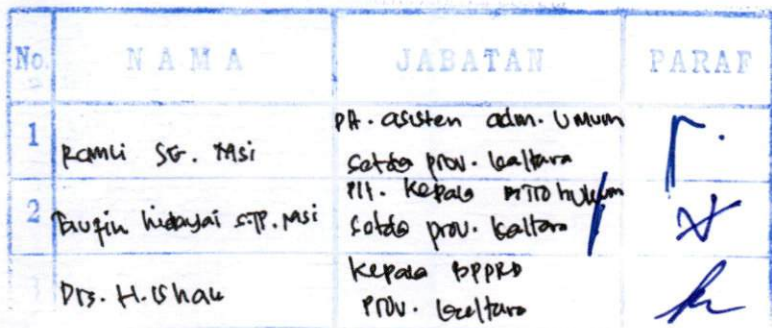 No. NAMA JABATAN PARAF
1 Ramli SE. MSi Plt. asisten adm. Umum
Setda prov. kaltara
2 Taufin hidayat S.TP. MSi Plt. Kepala Biro hukum
Setda prov. kaltara
Drs. H. Ishak Kepala BPPRD
Prov. kaltara